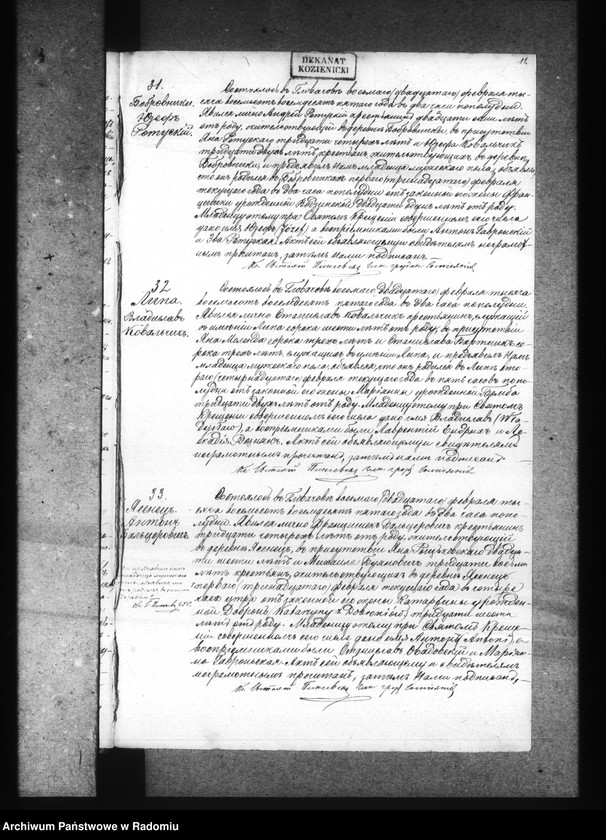 DEKANAT
KOZIENICKI
11
31.
Бобровники.
Юзефъ
Ратускій.
Состоялось въ Гловачовѣ восьмаго /двадцатаго/ февраля ты-
сяча восемьсотъ восемьдесятъ пятаго года въ два часа пополудни.
Явился лично Андрей Ратускій крестьянинъ двадцати семи лѣтъ
отъ роду, жительствующій въ деревнѣ Бобровники, въ присутствіи
Яна Ратускаго тридцати четырехъ лѣтъ и Юзефа Ковальчикъ
тридцати двухъ лѣтъ, крестьянъ, жительствующихъ въ деревнѣ
Бобровники, и предъявилъ Намъ младенца мужескаго пола, объявляя,
что онъ родился въ Бобровникахъ перваго /тринадцатаго/ февраля
текущаго года въ два часа пополудни отъ законной его жены Фран-
цишки урожденной двадцати лѣтъ отъ роду.
Младенцу тому при Святомъ Крещеніи совершенномъ сего числа
дано имя Юзефъ /Józef/ а воспріемниками были Антонъ Гавронскій
и Эва Ратуская. Актъ сей объявляющему и свидѣтелямъ неграмот-
нымъ прочитанъ, затѣмъ Нами подписанъ.
32
Липа.
Владиславъ
Ковальчикъ.
Состоялось въ Гловачовѣ восьмаго /двадцатаго/ февраля тысяча
восемьсотъ восемьдесятъ пятаго года въ два часа пополудни.
Явился лично Станиславъ Ковальчикъ крестьянинъ, служащій
въ имѣніи Липа сорока шести лѣтъ отъ роду, въ присутствіи
Яна сорока трехъ лѣтъ и Станислава Бартникъ со-
рока трехъ лѣтъ, служащихъ въ имѣніи Липа, и предъявилъ Намъ
младенца мужескаго пола, объявляя, что онъ родился въ Липѣ вто-
раго /четырнадцатаго/ февраля текущаго года въ пять часовъ попо-
лудни отъ законной его жены Маріанны урожденной
тридцати двухъ лѣтъ отъ роду. Младенцу тому при Святомъ
Крещеніи совершенномъ сего числа дано имя Владиславъ /Wła-
dysław/, а воспріемниками были Лаврентій Ендрихъ и
Актъ сей объявляющему и свидѣтелямъ
неграмотнымъ прочитанъ, затѣмъ Нами подписанъ.
33.
Ясенецъ.
Антонъ
Бальцеровичъ.
Состоялось въ Гловачовѣ восьмаго /двадцатаго/ февраля ты-
сяча восемьсотъ восемьдесятъ пятаго года въ два часа попо-
лудни. Явился лично Францишекъ Бальцеровичъ крестьянинъ
тридцати четырехъ лѣтъ отъ роду, жительствующій
въ деревнѣ Ясенецъ, въ присутствіи Яна двадца-
ти шести лѣтъ и Михаила тридцати восьми
лѣтъ крестьянъ, жительствующихъ въ деревнѣ Ясенецъ
перваго /тринадцатаго/ февраля текущаго года въ четыре
часа утра отъ законной его жены Катаржины урожден-
ной тридцати шести
лѣтъ отъ роду. Младенцу тому при Святомъ Креще-
ніи совершенномъ сего числа дано имя Антонъ /Antoni/, а
воспріемниками были Станиславъ и Марьян-
на Гавронская. Актъ сей объявляющему и свидѣтелямъ
неграмотнымъ прочитанъ, затѣмъ Нами подписанъ.
Archiwum Państwowe w Radomiu